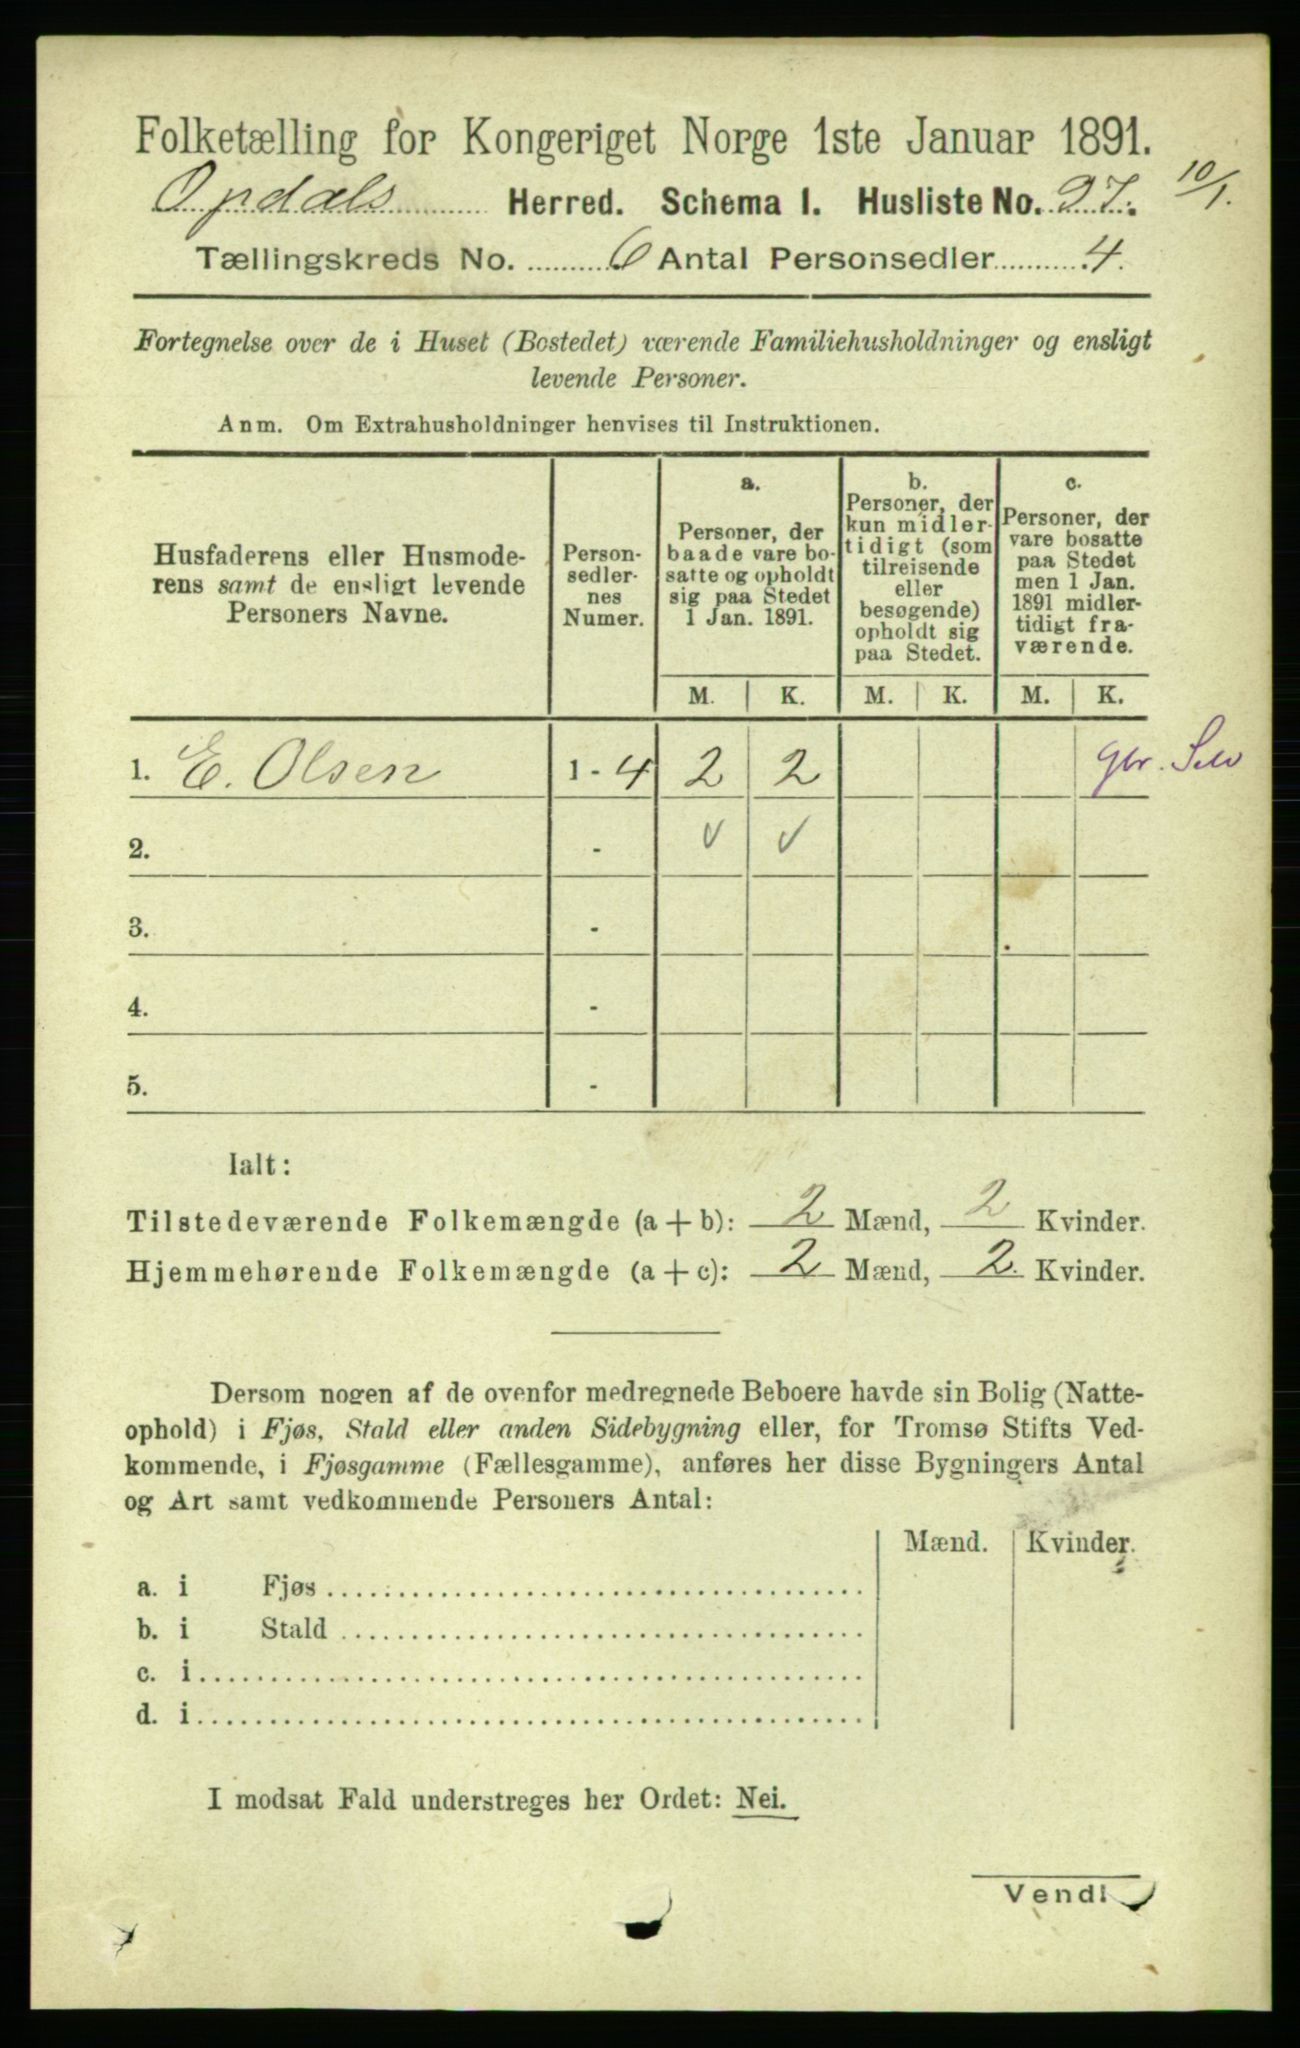 Folketælling for Kongeriget Norge 1ste Januar 1891.
Opdals Herred. Schema I. Husliste No. 27. 10/1.
Tællingskreds No. 6 Antal Personsedler 4.
Fortegnelse over de i Huset (Bostedet) værende Familiehusholdninger og ensligt
levende Personer.
Anm. Om Extrahusholdninger henvises til Instruktionen.
Husfaderens eller Husmode-
rens samt de ensligt levende
Personers Navne.
Person-
sedler-
nes
Numer.
a.
Personer, der
baade vare bo-
satte og opholdt
sig paa Stedet
1 Jan. 1891.
b.
Personer, der
kun midler-
tidigt (som
tilreisende
eller
besøgende)
opholdt sig
paa Stedet.
c.
Personer, der
vare bosatte
paa Stedet
men 1 Jan.
1891 midler-
tidigt fra-
værende.
M. K. M. K. M. K.
1. E. Olsen 1 - 4 2 2 Gbr. Selv
2. -
3. -
4. -
5. -
Ialt:
Tilstedeværende Folkemængde (a + b): 2 Mænd, 2 Kvinder.
Hjemmehørende Folkemængde (a + c): 2 Mænd, 2. Kvinder.
Dersom nogen af de ovenfor medregnede Beboere havde sin Bolig (Natte-
ophold) i Fjøs, Stald eller anden Sidebygning eller, for Tromsø Stifts Ved-
kommende, i Fjøsgamme (Fællesgamme), anføres her disse Bygningers Antal
og Art samt vedkommende Personers Antal:
Mænd. Kvinder.
a. i Fjøs
b. i Stald
c. i
d. i
I modsat Fald understreges her Ordet: Nei.
Vend!